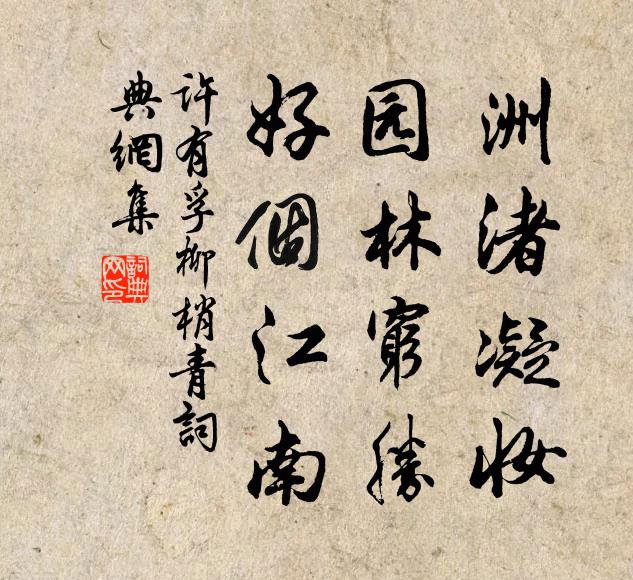 洲渚凝妆
园林窮勝
好個江南
許有孚柳梢青詞
典網集
詞典网印